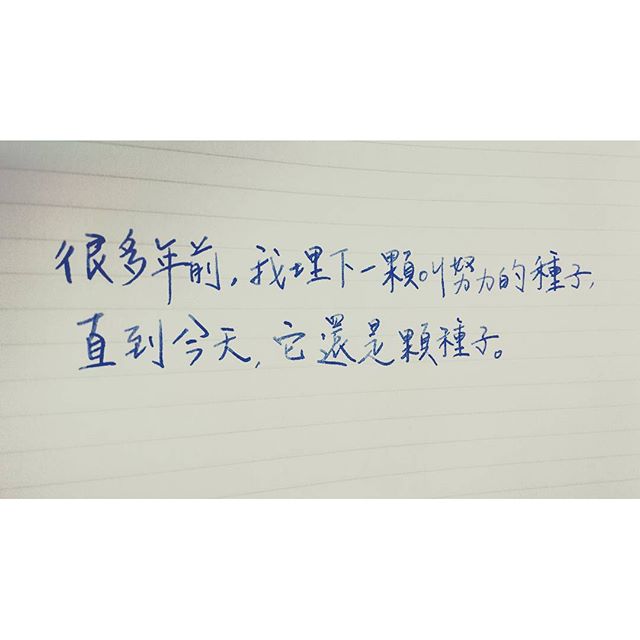 很多年前,我埋下一顆叫努力的種子,
直到今天,它還是顆種子。